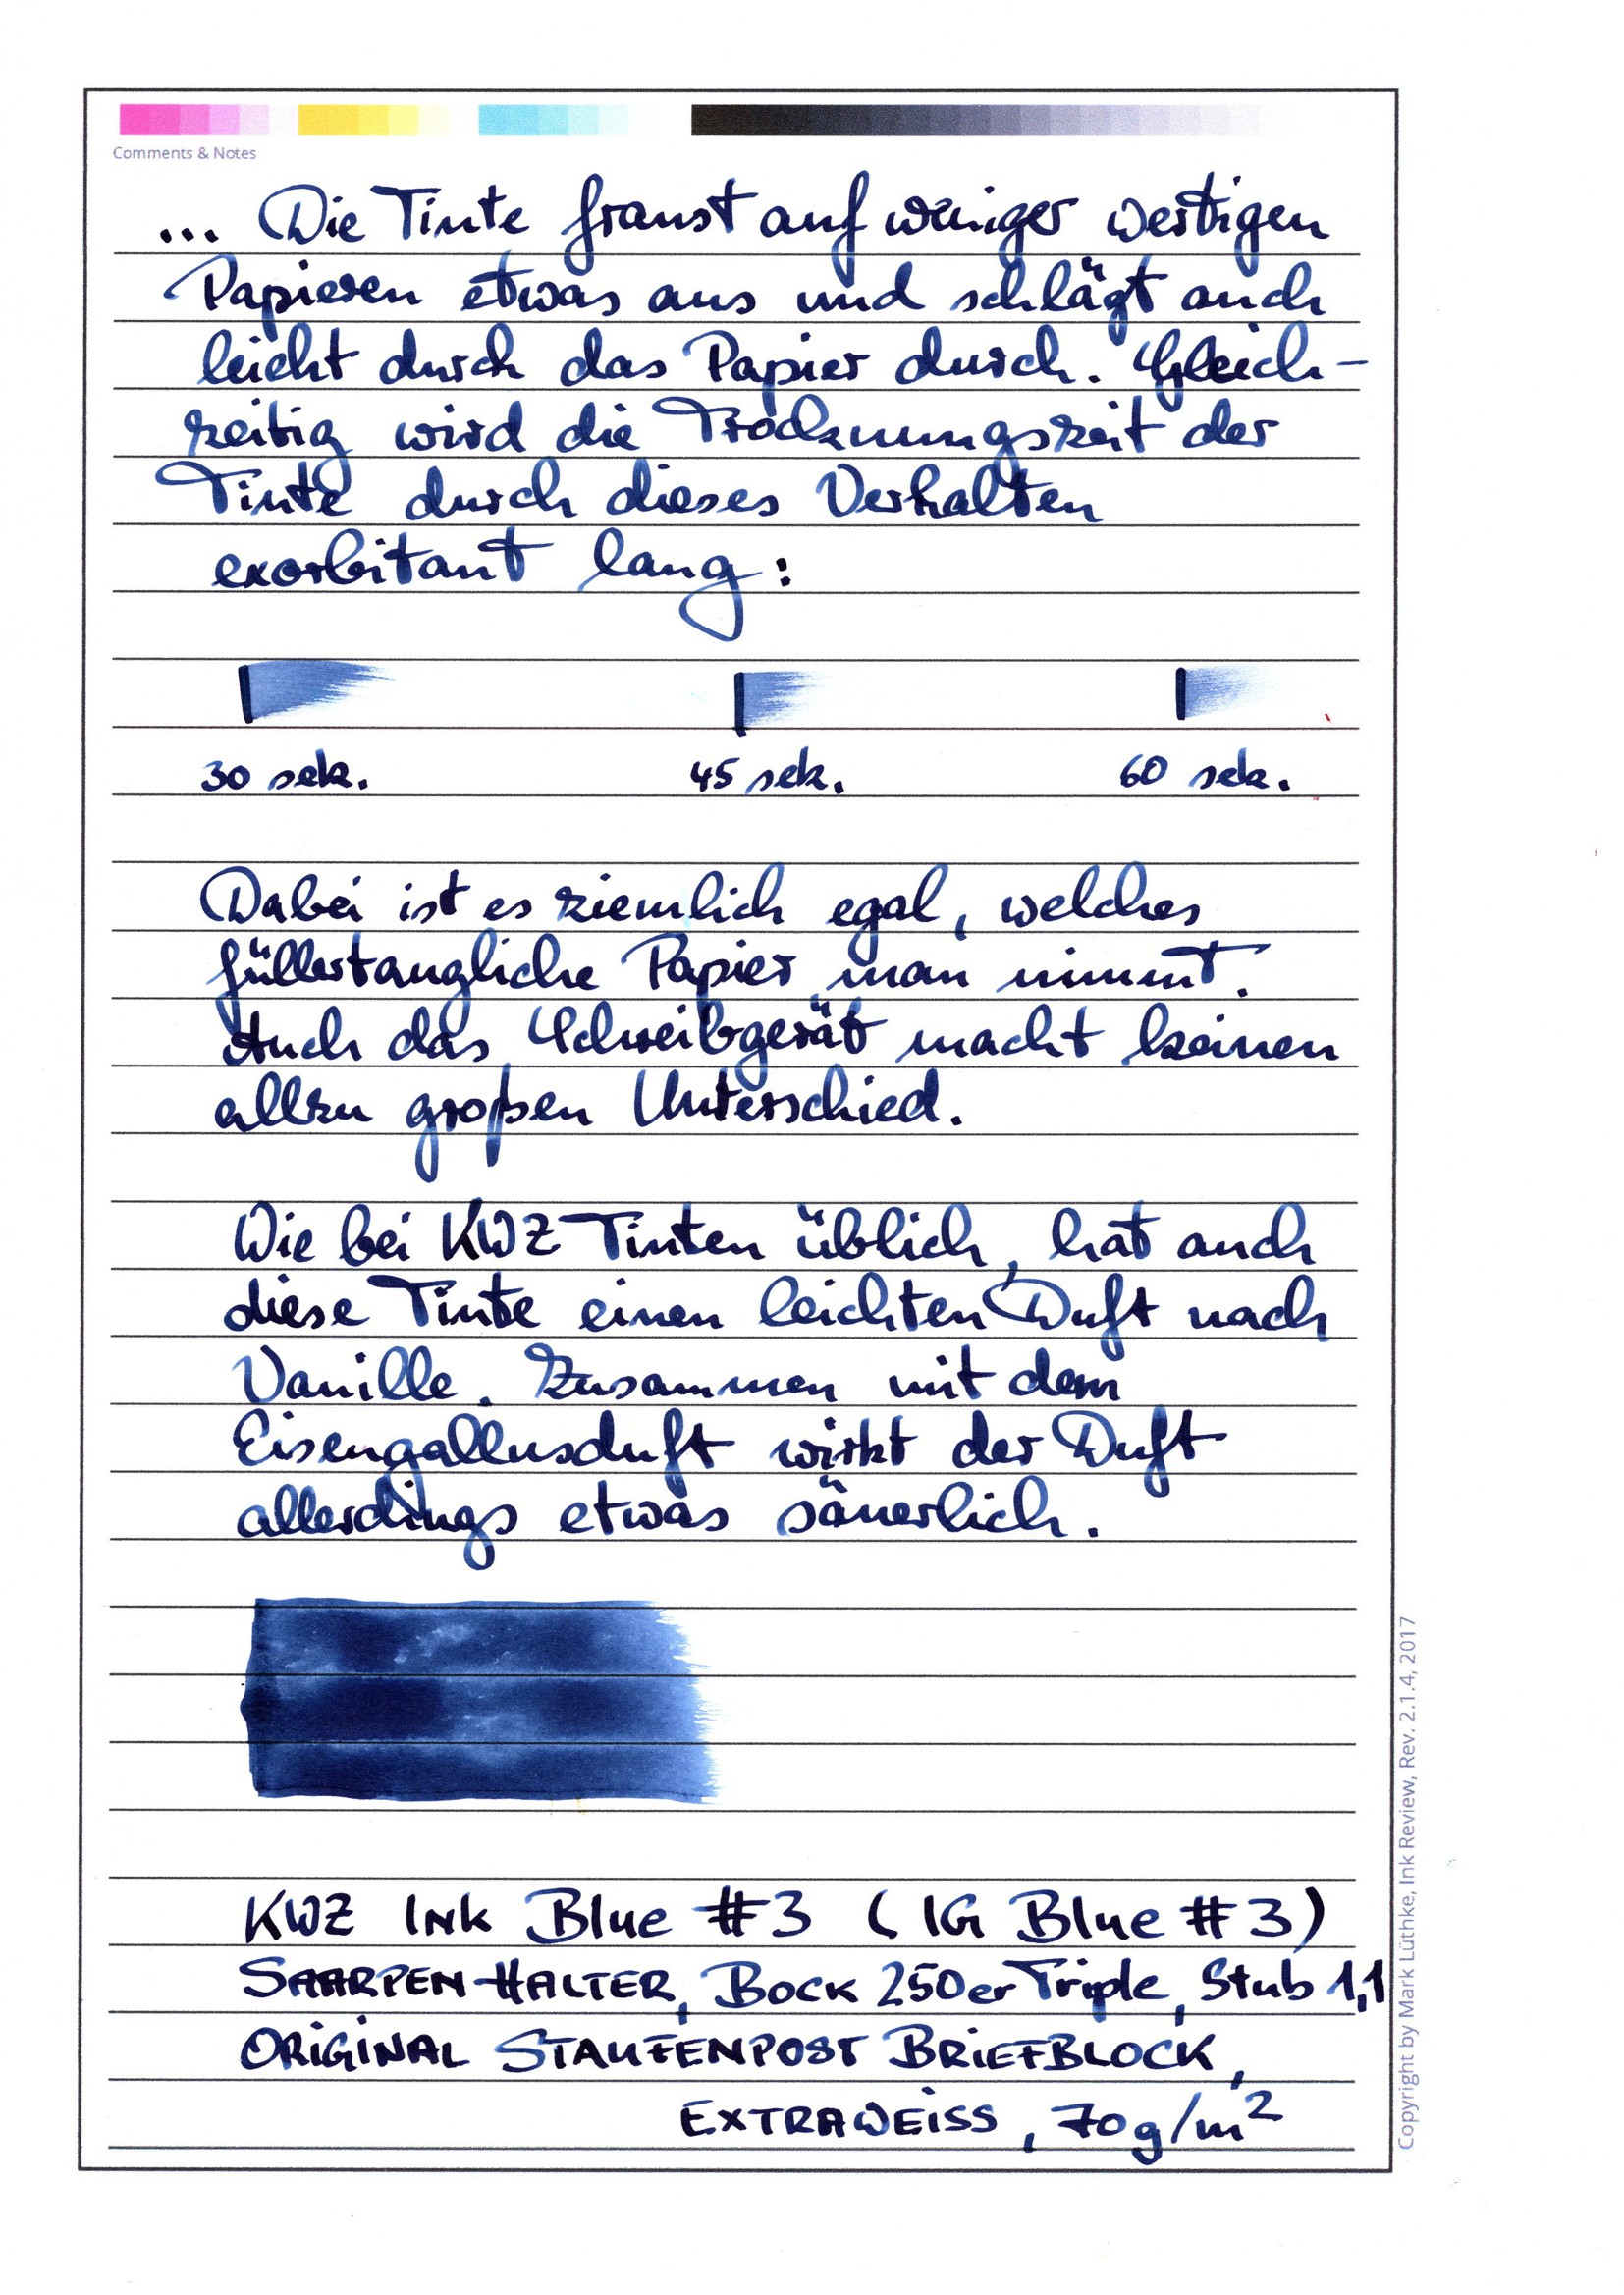 Comments & Notes
... Die Tinte franst auf weniger wertigen
Papieren etwas aus und schlägt auch
leicht durch das Papier durch. Gleich-
zeitig wird die Trocknungszeit der
Tinte durch dieses Verhalten
exorbitant lang:
30 sek. 45 sek. 60 sek.
Dabei ist es ziemlich egal, welches
füllertaugliche Papier man nimmt.
Auch das Schreibgerät macht keinen
allzu großen Unterschied.
Wie bei KWZ Tinten üblich, hat auch
diese Tinte einen leichten Duft nach
Vanille. Zusammen mit dem
Eisengallusduft wirkt der Duft
allerdings etwas säuerlich.
KWZ Ink Blue #3 (IG Blue #3)
SAARPEN-HALTER, BOCK 250er Triple, Stub 1,1
ORIGINAL STAUFENPOST BRIEFBLOCK,
EXTRAWEISS, 70g/m²
Copyright by Mark Lüthke, Ink Review, Rev. 2.1.4, 2017